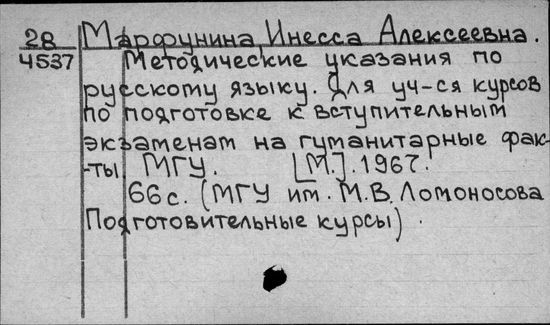 28 Марфунина, Инесса Алексеевна.
4537 Методические указания по
русскому языку. Для уч-ся курсов
по подготовке к вступительным
экзаменам на гуманитарные фак-
-ты МГУ. [М.]. 1967.
66 с. (МГУ им. М.В. Ломоносова
Подготовительные курсы).